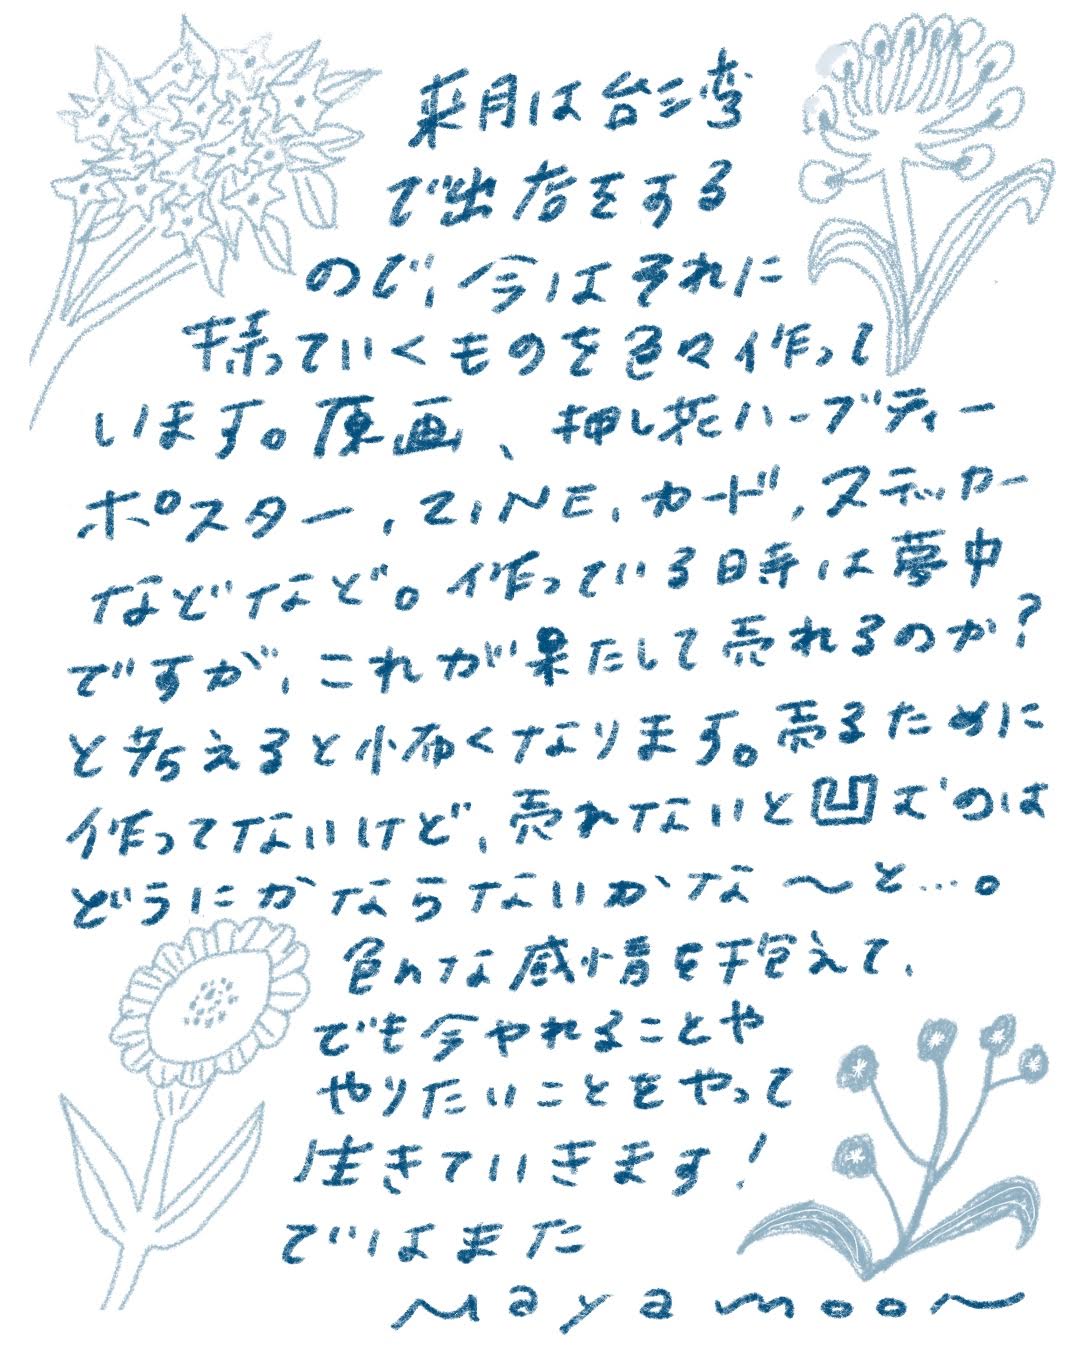 来月は台湾
で出店をする
ので、今はそれに
持っていくものを色々作って
います。原画、押し花ハーブティー
ポスター、ZINE、カード、ステッカー
などなど。作っている時は夢中
ですが、これが果たして売れるのか?
と考えると小怖くなります。売るために
作ってないけど、売れないと凹むのは
どうにかならないかな〜と…。
色んな感情を抱えて、
でも今やれることや
やりたいことをやって
生きていきます!
ではまた
Mayamoon